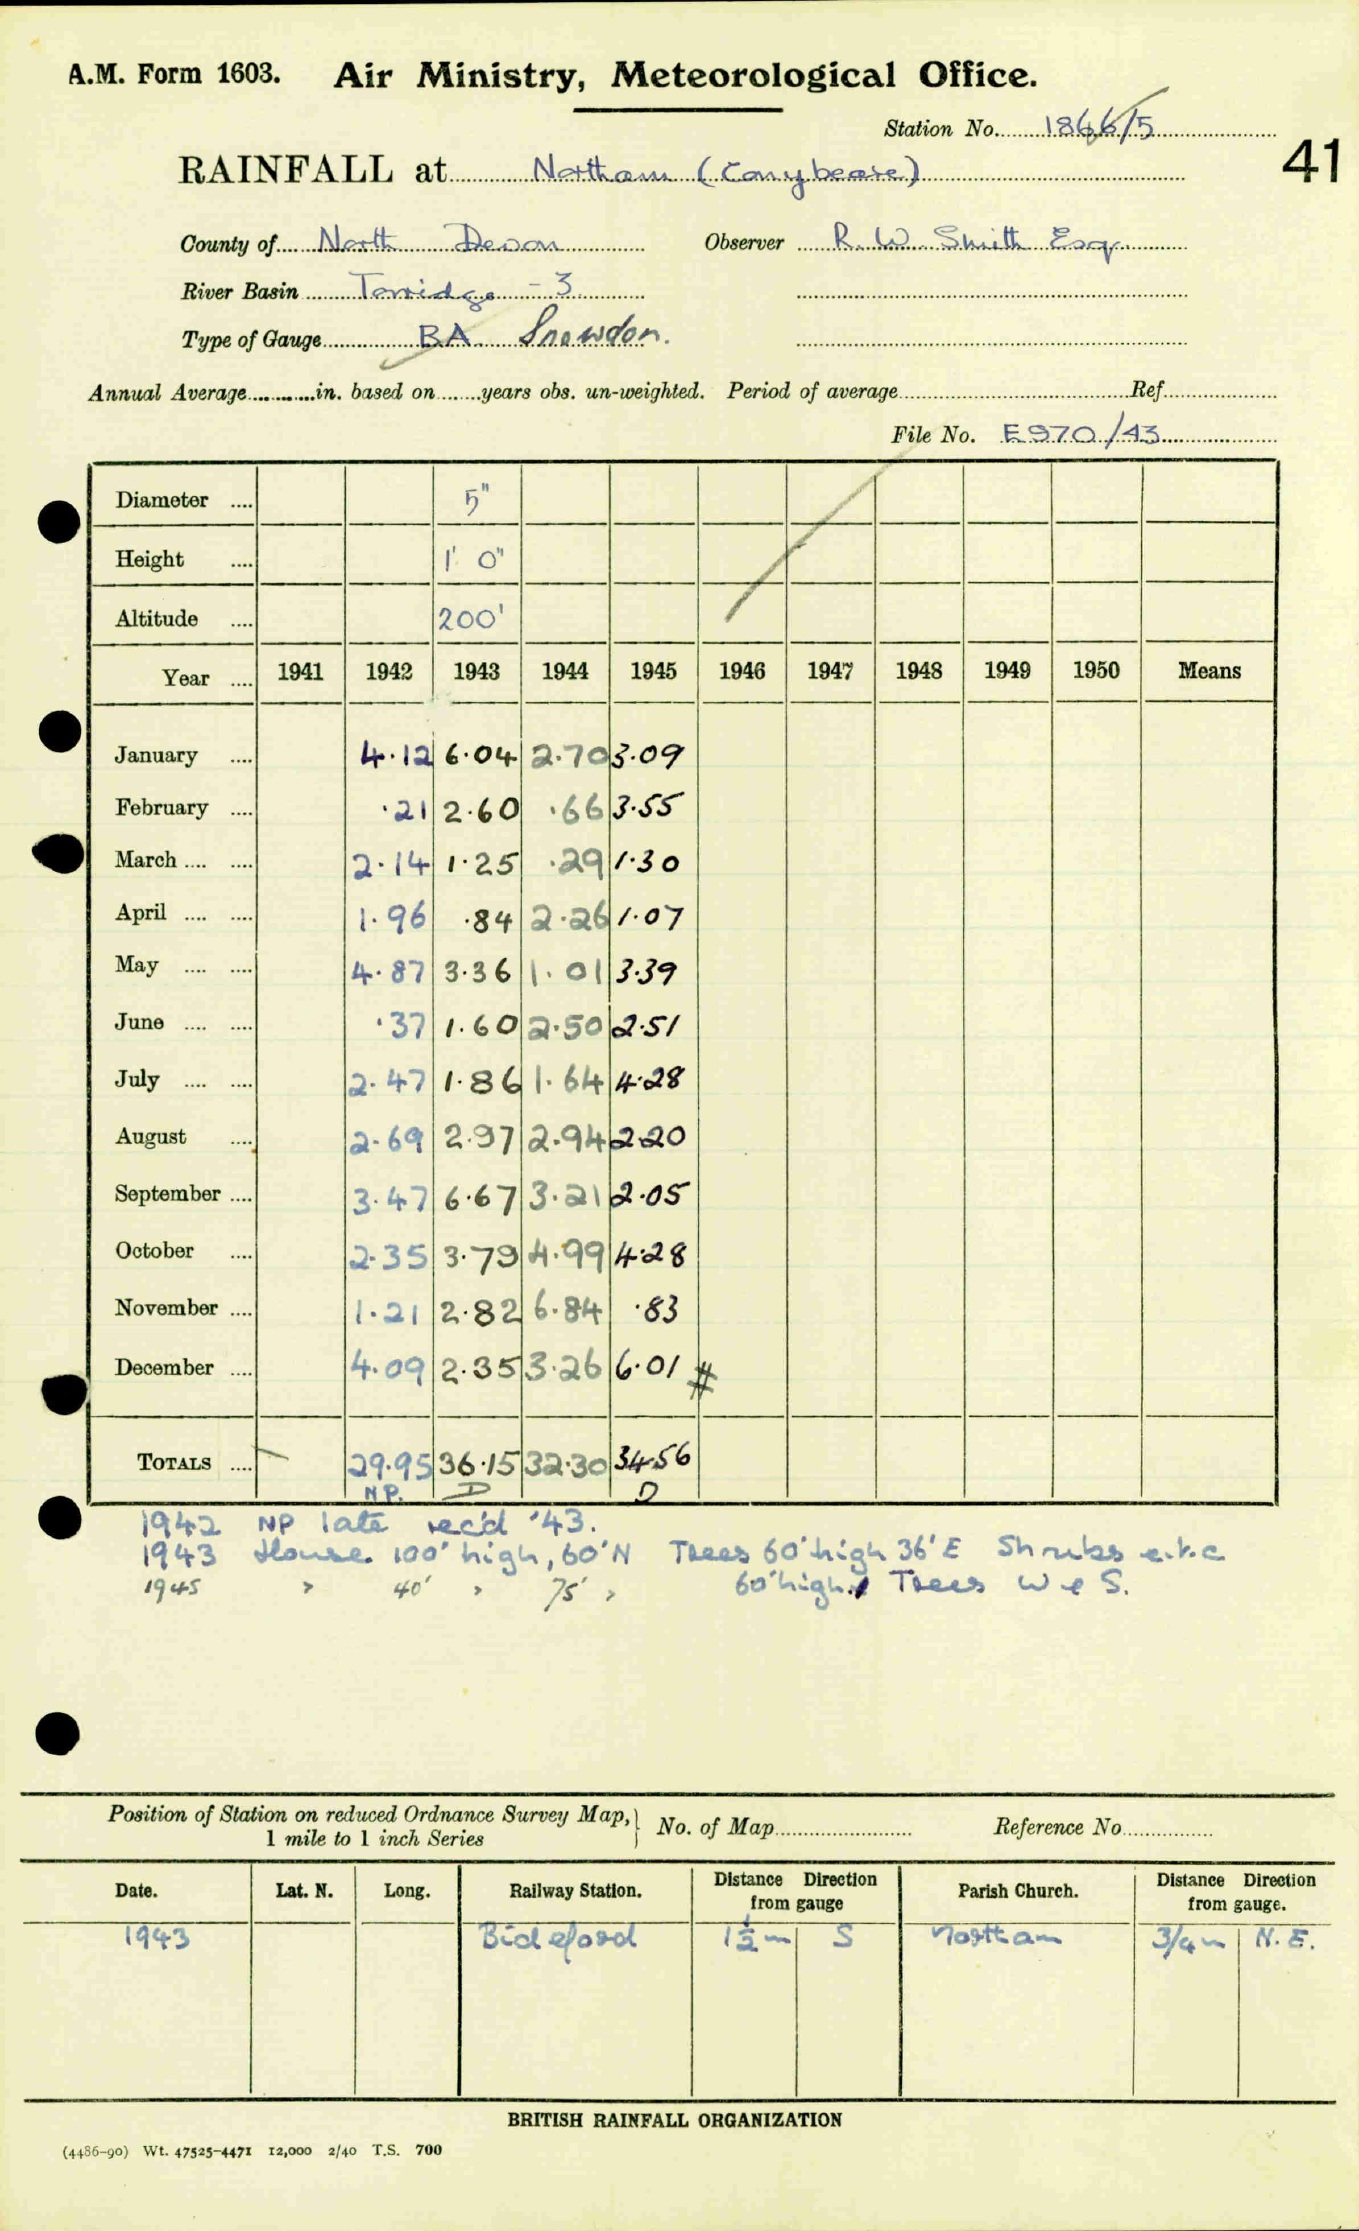 A.M. Form 1603. Air Ministry, Meteorological Office.
Station No. 1866/5
41
RAINFALL at Northam (Conybeare)
County of North Devon Observer R. W. Smith Esq.
River Basin Torridge - 3
Type of Gauge BA Snowdon.
Annual Average in. based on years obs. un-weighted. Period of average Ref.
File No. E970/43
Diameter .... 5"
Height .... 1' 0"
Altitude .... 200'
Year .... 1941 1942 1943 1944 1945 1946 1947 1948 1949 1950 Means
January .... 4.12 6.04 2.70 3.09
February .... .21 2.60 .66 3.55
March .... .... 2.14 1.25 .29 1.30
April .... .... 1.96 .84 2.26 1.07
May .... .... 4.87 3.36 1.01 3.39
June .... .... .37 1.60 2.50 2.51
July .... .... 2.47 1.86 1.64 4.28
August .... 2.69 2.97 2.94 2.20
September .... 3.47 6.67 3.21 2.05
October .... 2.35 3.79 4.99 4.28
November .... 1.21 2.82 6.84 .83
December .... 4.09 2.35 3.26 6.01 #
TOTALS .... 29.95 36.15 32.30 34.56
NP. D D
1942 NP late rec'd '43.
1943 House 100' high, 60' N Trees 60' high 36' E Shrubs e.t.c
1945 " 40' " 75' " 60' high. Trees W & S.
Position of Station on reduced Ordnance Survey Map, } No. of Map Reference No
1 mile to 1 inch Series
Date. Lat. N. Long. Railway Station. Distance Direction from gauge Parish Church. Distance Direction from gauge.
1943 Bideford 1½ m S Northam 3/4 m N. E.
BRITISH RAINFALL ORGANIZATION
(4486-90) Wt. 47525-4471 12,000 2/40 T.S. 700